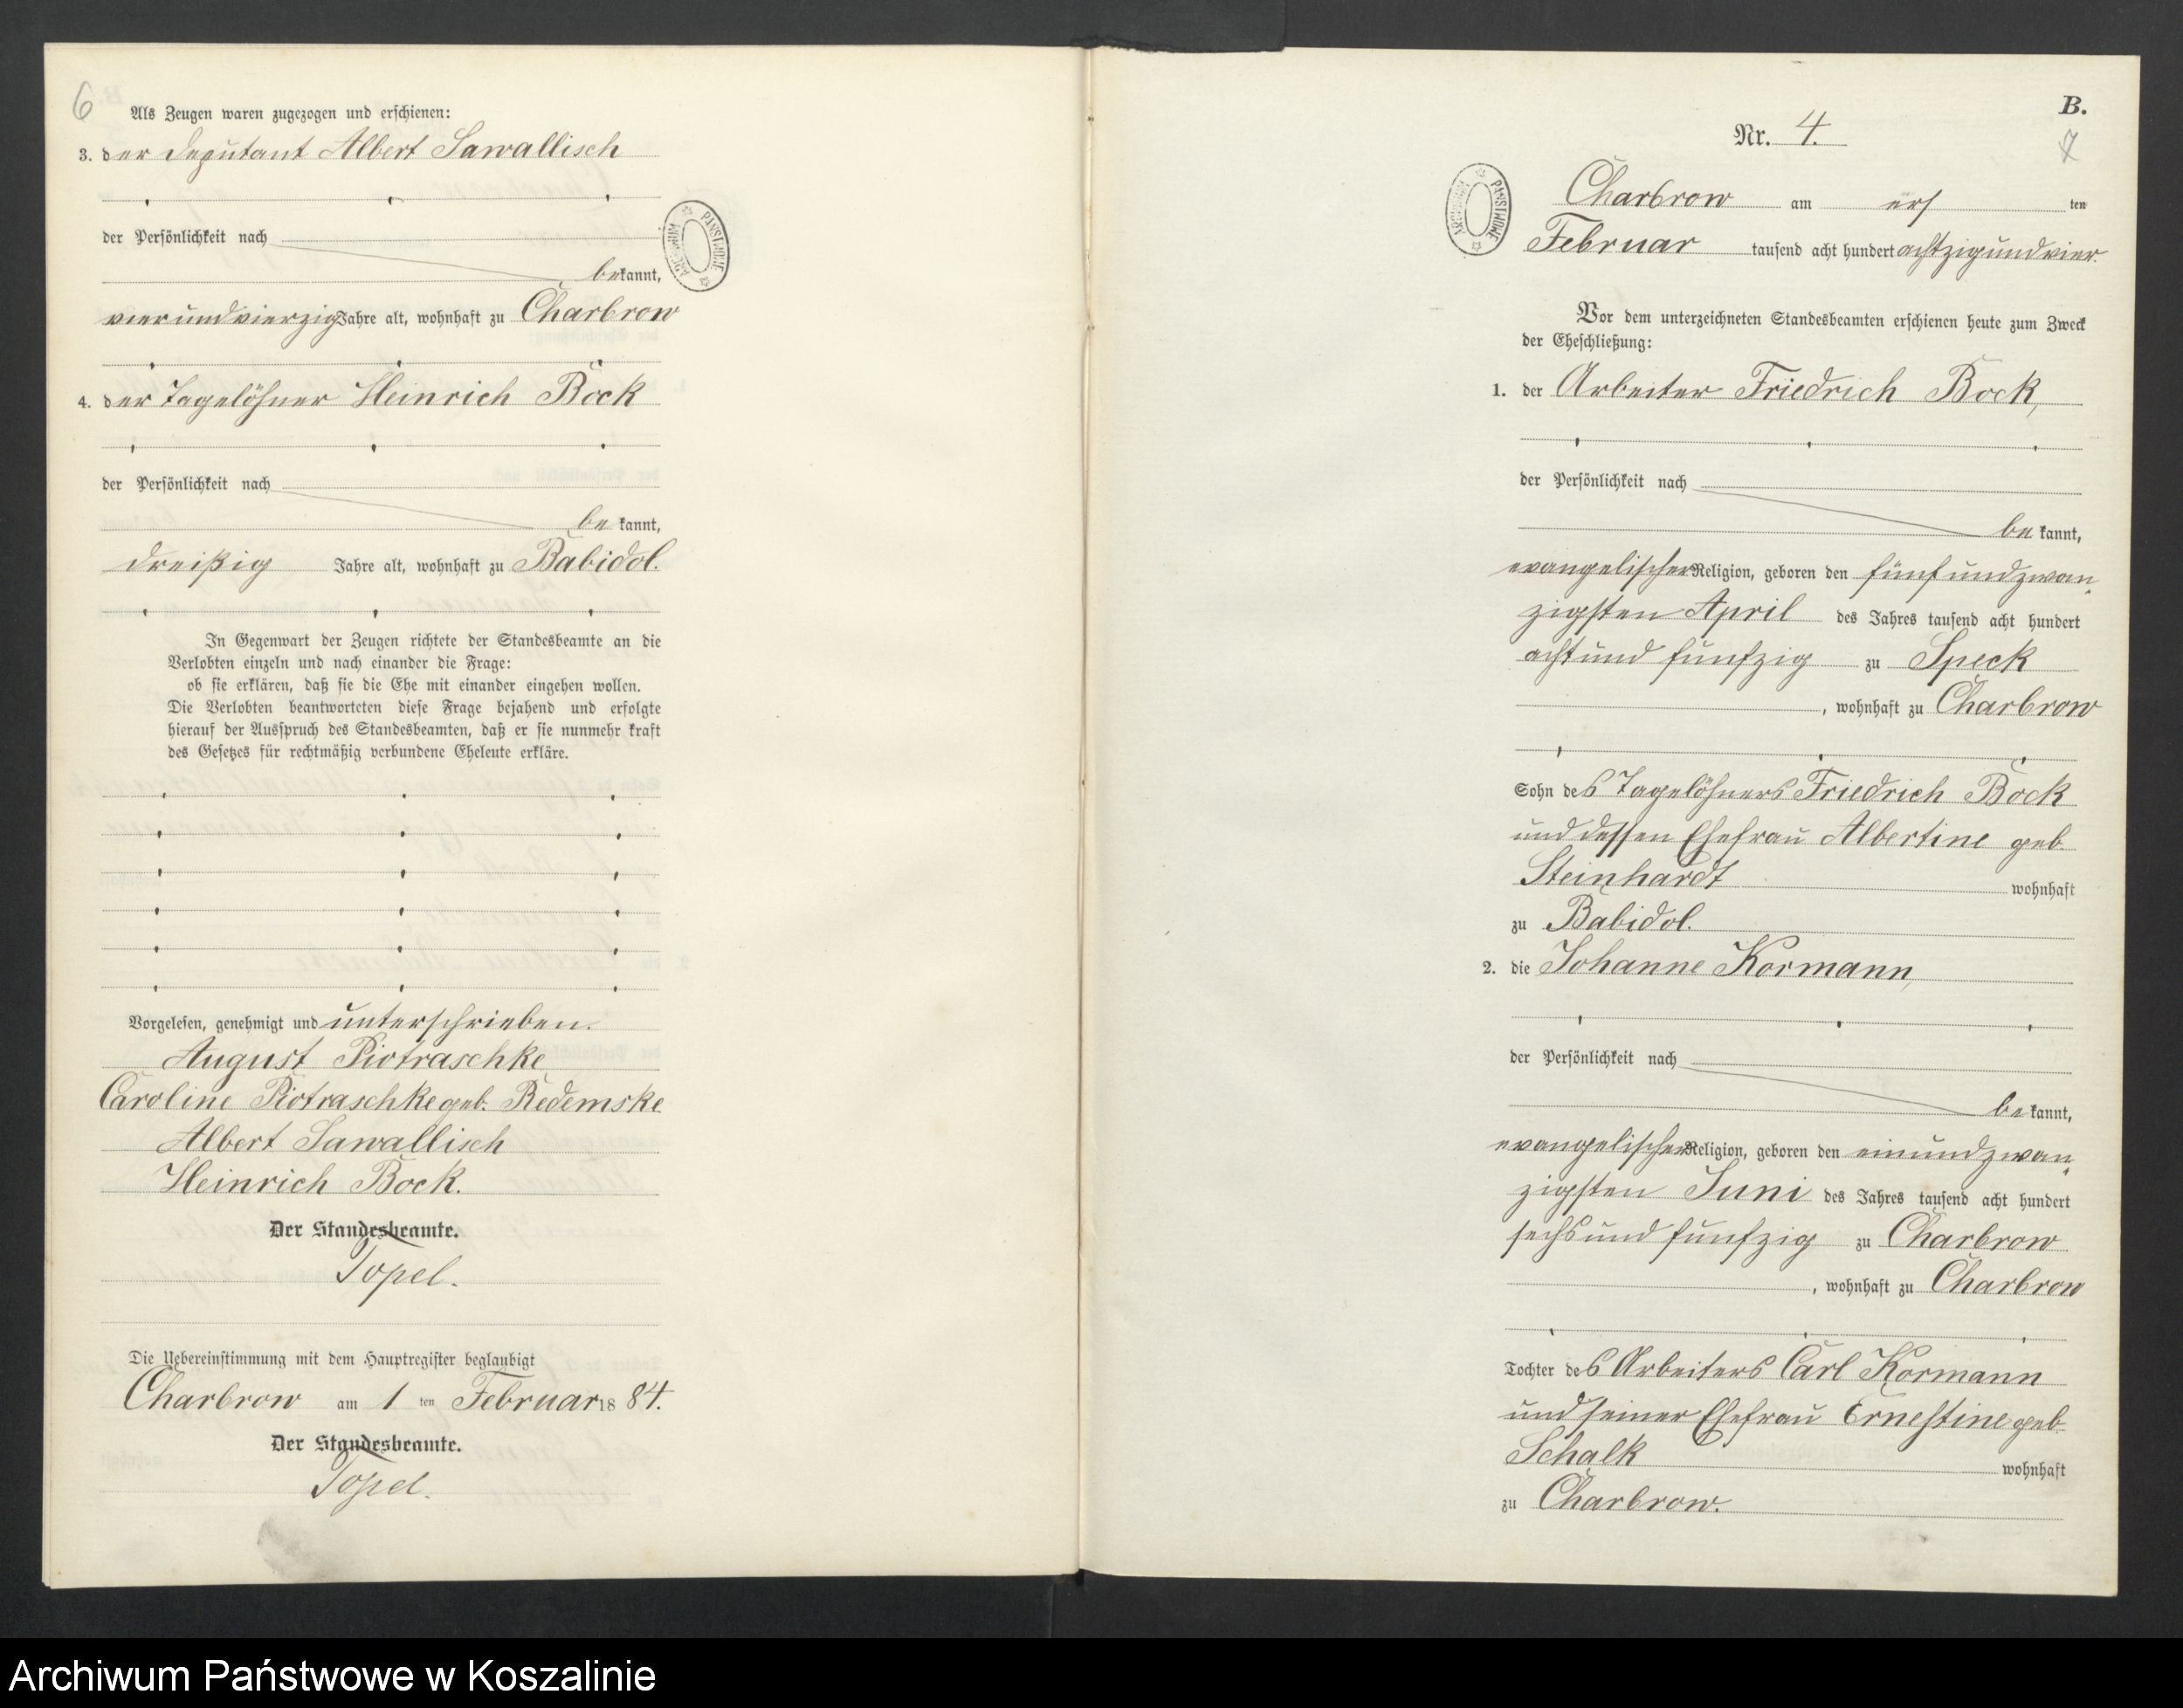 6
Als Zeugen waren zugezogen und erschienen:
3. der Deputant Albert Sawallisch
der Persönlichkeit nach
bekannt,
vierundvierzig Jahre alt, wohnhaft zu Charbrow
4. der Tagelöhner Heinrich Bock
der Persönlichkeit nach
bekannt,
dreißig Jahre alt, wohnhaft zu Babidol.
In Gegenwart der Zeugen richtete der Standesbeamte an die
Verlobten einzeln und nach einander die Frage:
ob sie erklären, daß sie die Ehe mit einander eingehen wollen.
Die Verlobten beantworteten diese Frage bejahend und erfolgte
hierauf der Ausspruch des Standesbeamten, daß er sie nunmehr kraft
des Gesetzes für rechtmäßig verbundene Eheleute erkläre.
Vorgelesen, genehmigt und unterschrieben.
August Piotraschke
Caroline Piotraschke geb. Redemske
Albert Sawallisch
Heinrich Bock.
Der Standesbeamte.
Topel.
Die Uebereinstimmung mit dem Hauptregister beglaubigt
Charbrow am 1 ten Februar 18 84.
Der Standesbeamte.
Topel.
ARCHIWUM PAŃSTWOWE
B.
7
Nr. 4.
ARCHIWUM PAŃSTWOWE
Charbrow am ers ten
Februar tausend acht hundert achtzigundvier.
Vor dem unterzeichneten Standesbeamten erschienen heute zum Zweck
der Eheschließung:
1. der Arbeiter Friedrich Bock,
der Persönlichkeit nach
bekannt,
evangelischer Religion, geboren den fünfundzwan-
zigsten April des Jahres tausend acht hundert
achtundfünfzig zu Speck
, wohnhaft zu Charbrow
Sohn des Tagelöhners Friedrich Bock
und dessen Ehefrau Albertine geb.
Steinhardt wohnhaft
zu Babidol.
2. die Johanne Kormann,
der Persönlichkeit nach
bekannt,
evangelischer Religion, geboren den einundzwan-
zigsten Juni des Jahres tausend acht hundert
sechsundfünfzig zu Charbrow
, wohnhaft zu Charbrow
Tochter des Arbeiters Carl Kormann
und seiner Ehefrau Ernestine geb.
Schalk wohnhaft
zu Charbrow.
Archiwum Państwowe w Koszalinie